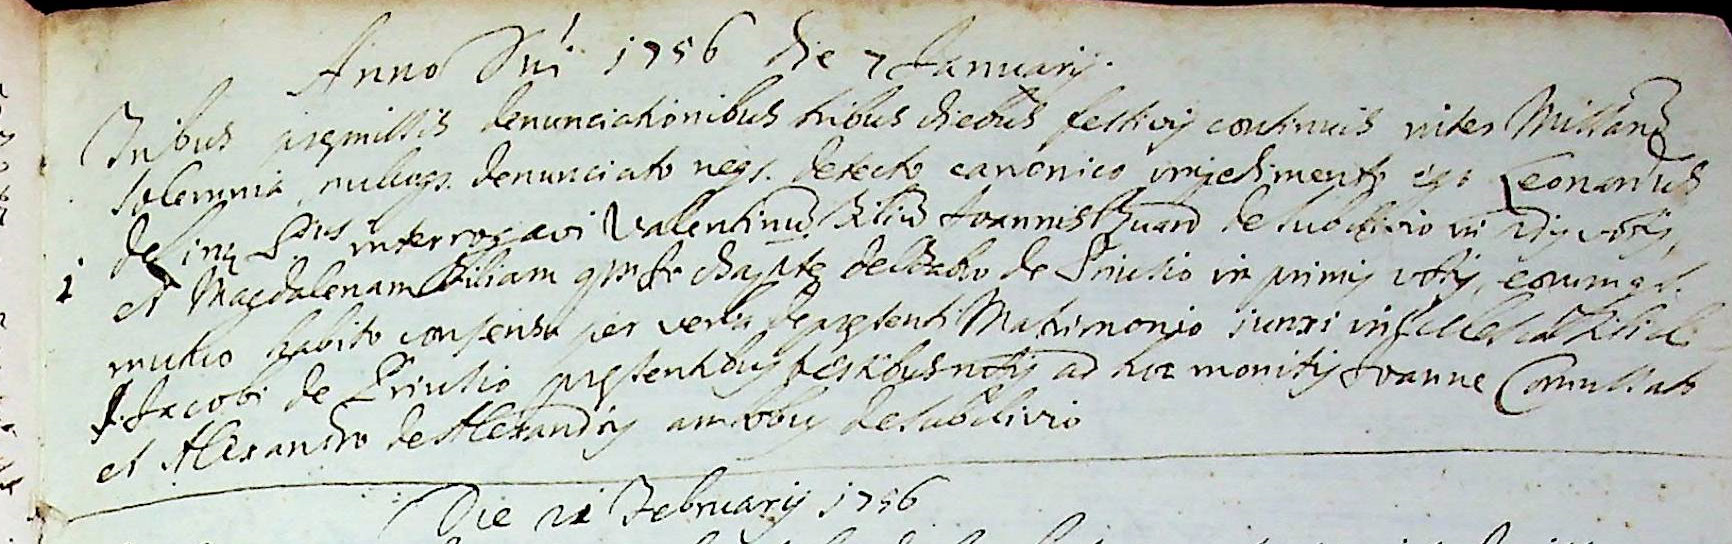 Anno Dni 1756 die 7 Januarij.
Tribus premissis denunciationibus tribus diebus festivis continuis inter Missarum
solemnia, nulloqs. denunciato neqs. detecto canonico impedimento ego Leonardus
de interrogavi Valentinum filium Joannis de Subclivio in votis,
1 et Magdalenam filiam qm de Priusio in primis votis, eorumqs.
mutuo habito consensu per verba de presenti Matrimonio iunxi in
S. Jacobi de Priusio presentibus testibus notis ad hoc monitis Joanne
et Alexandro de Alexandris ambobus de Subclivio
Die 21 Februarij 1756